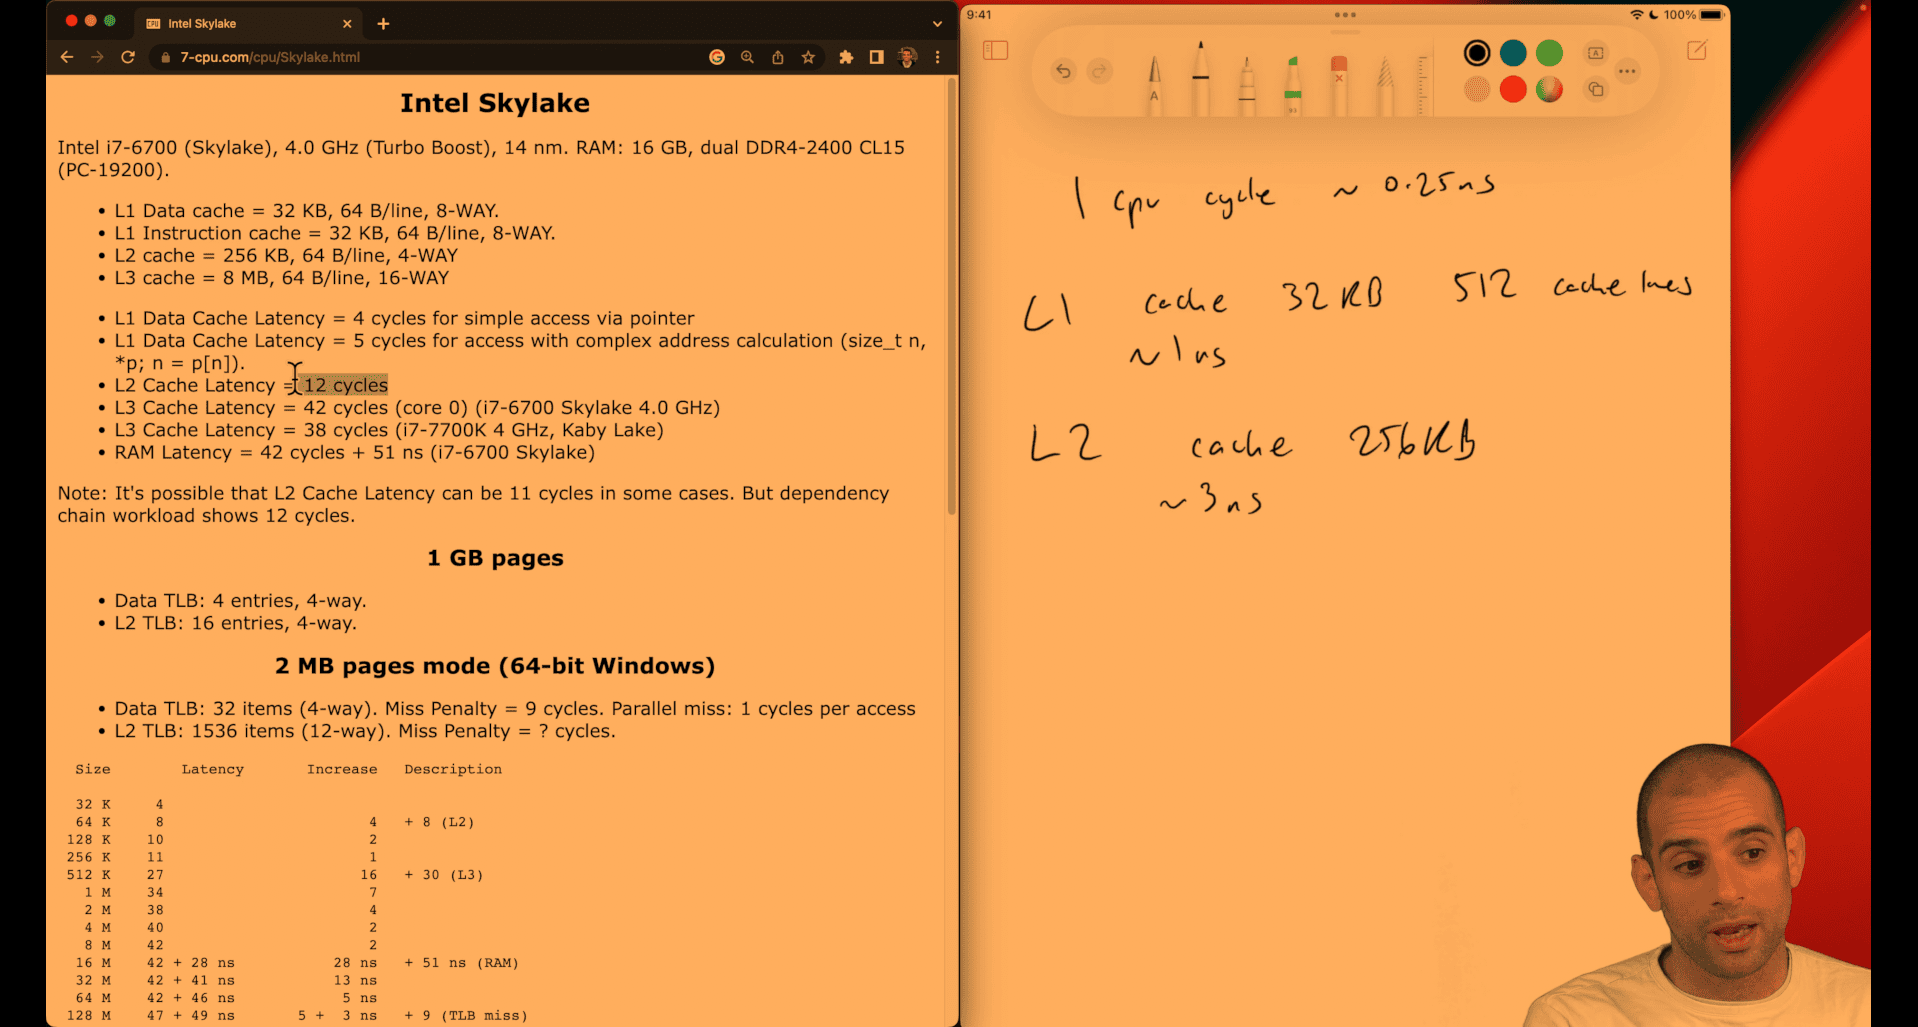 Intel Skylake
7-cpu.com/cpu/Skylake.html
Intel Skylake
Intel i7-6700 (Skylake), 4.0 GHz (Turbo Boost), 14 nm. RAM: 16 GB, dual DDR4-2400 CL15
(PC-19200).
• L1 Data cache = 32 KB, 64 B/line, 8-WAY.
• L1 Instruction cache = 32 KB, 64 B/line, 8-WAY.
• L2 cache = 256 KB, 64 B/line, 4-WAY
• L3 cache = 8 MB, 64 B/line, 16-WAY
• L1 Data Cache Latency = 4 cycles for simple access via pointer
• L1 Data Cache Latency = 5 cycles for access with complex address calculation (size_t n,
*p; n = p[n]).
• L2 Cache Latency = 12 cycles
• L3 Cache Latency = 42 cycles (core 0) (i7-6700 Skylake 4.0 GHz)
• L3 Cache Latency = 38 cycles (i7-7700K 4 GHz, Kaby Lake)
• RAM Latency = 42 cycles + 51 ns (i7-6700 Skylake)
Note: It's possible that L2 Cache Latency can be 11 cycles in some cases. But dependency
chain workload shows 12 cycles.
1 GB pages
• Data TLB: 4 entries, 4-way.
• L2 TLB: 16 entries, 4-way.
2 MB pages mode (64-bit Windows)
• Data TLB: 32 items (4-way). Miss Penalty = 9 cycles. Parallel miss: 1 cycles per access
• L2 TLB: 1536 items (12-way). Miss Penalty = ? cycles.
Size Latency Increase Description
32 K 4
64 K 8 4 + 8 (L2)
128 K 10 2
256 K 11 1
512 K 27 16 + 30 (L3)
1 M 34 7
2 M 38 4
4 M 40 2
8 M 42 2
16 M 42 + 28 ns 28 ns + 51 ns (RAM)
32 M 42 + 41 ns 13 ns
64 M 42 + 46 ns 5 ns
128 M 47 + 49 ns 5 + 3 ns + 9 (TLB miss)
9:41
100%
A
1 cpu cycle ~ 0.25ns
L1 cache 32KB 512 cache lines
~1ns
L2 cache 256KB
~3ns